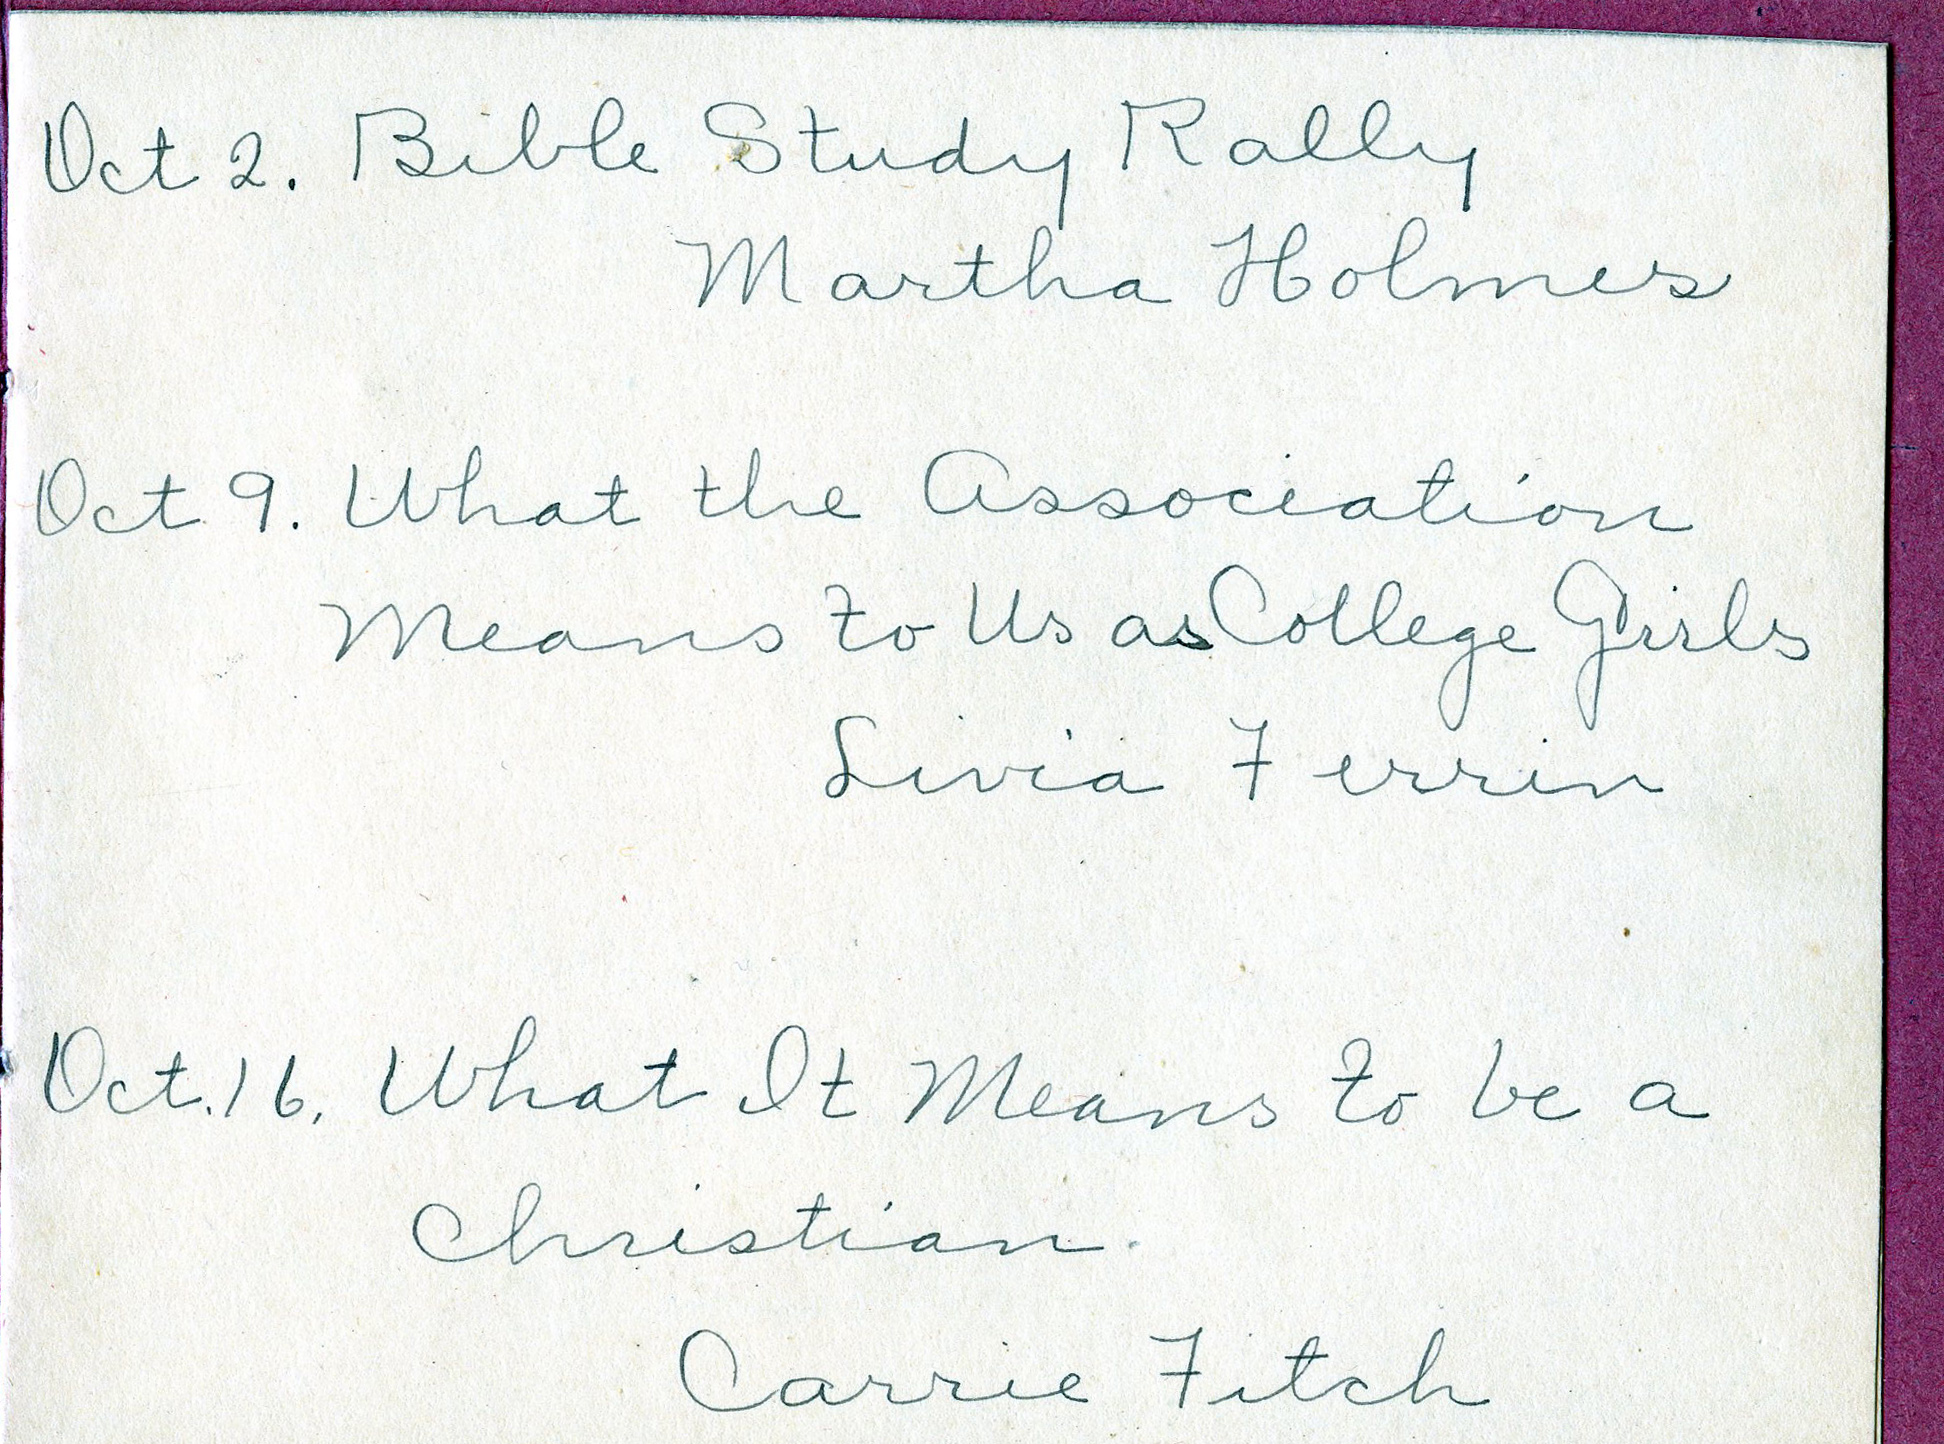 Oct 2. Bible Study Rally
Martha Holmes
Oct 9. What the Association
Means to Us as College Girls
Livia Ferrin
Oct. 16. What It Means to be a
Christian.
Carrie Fitch